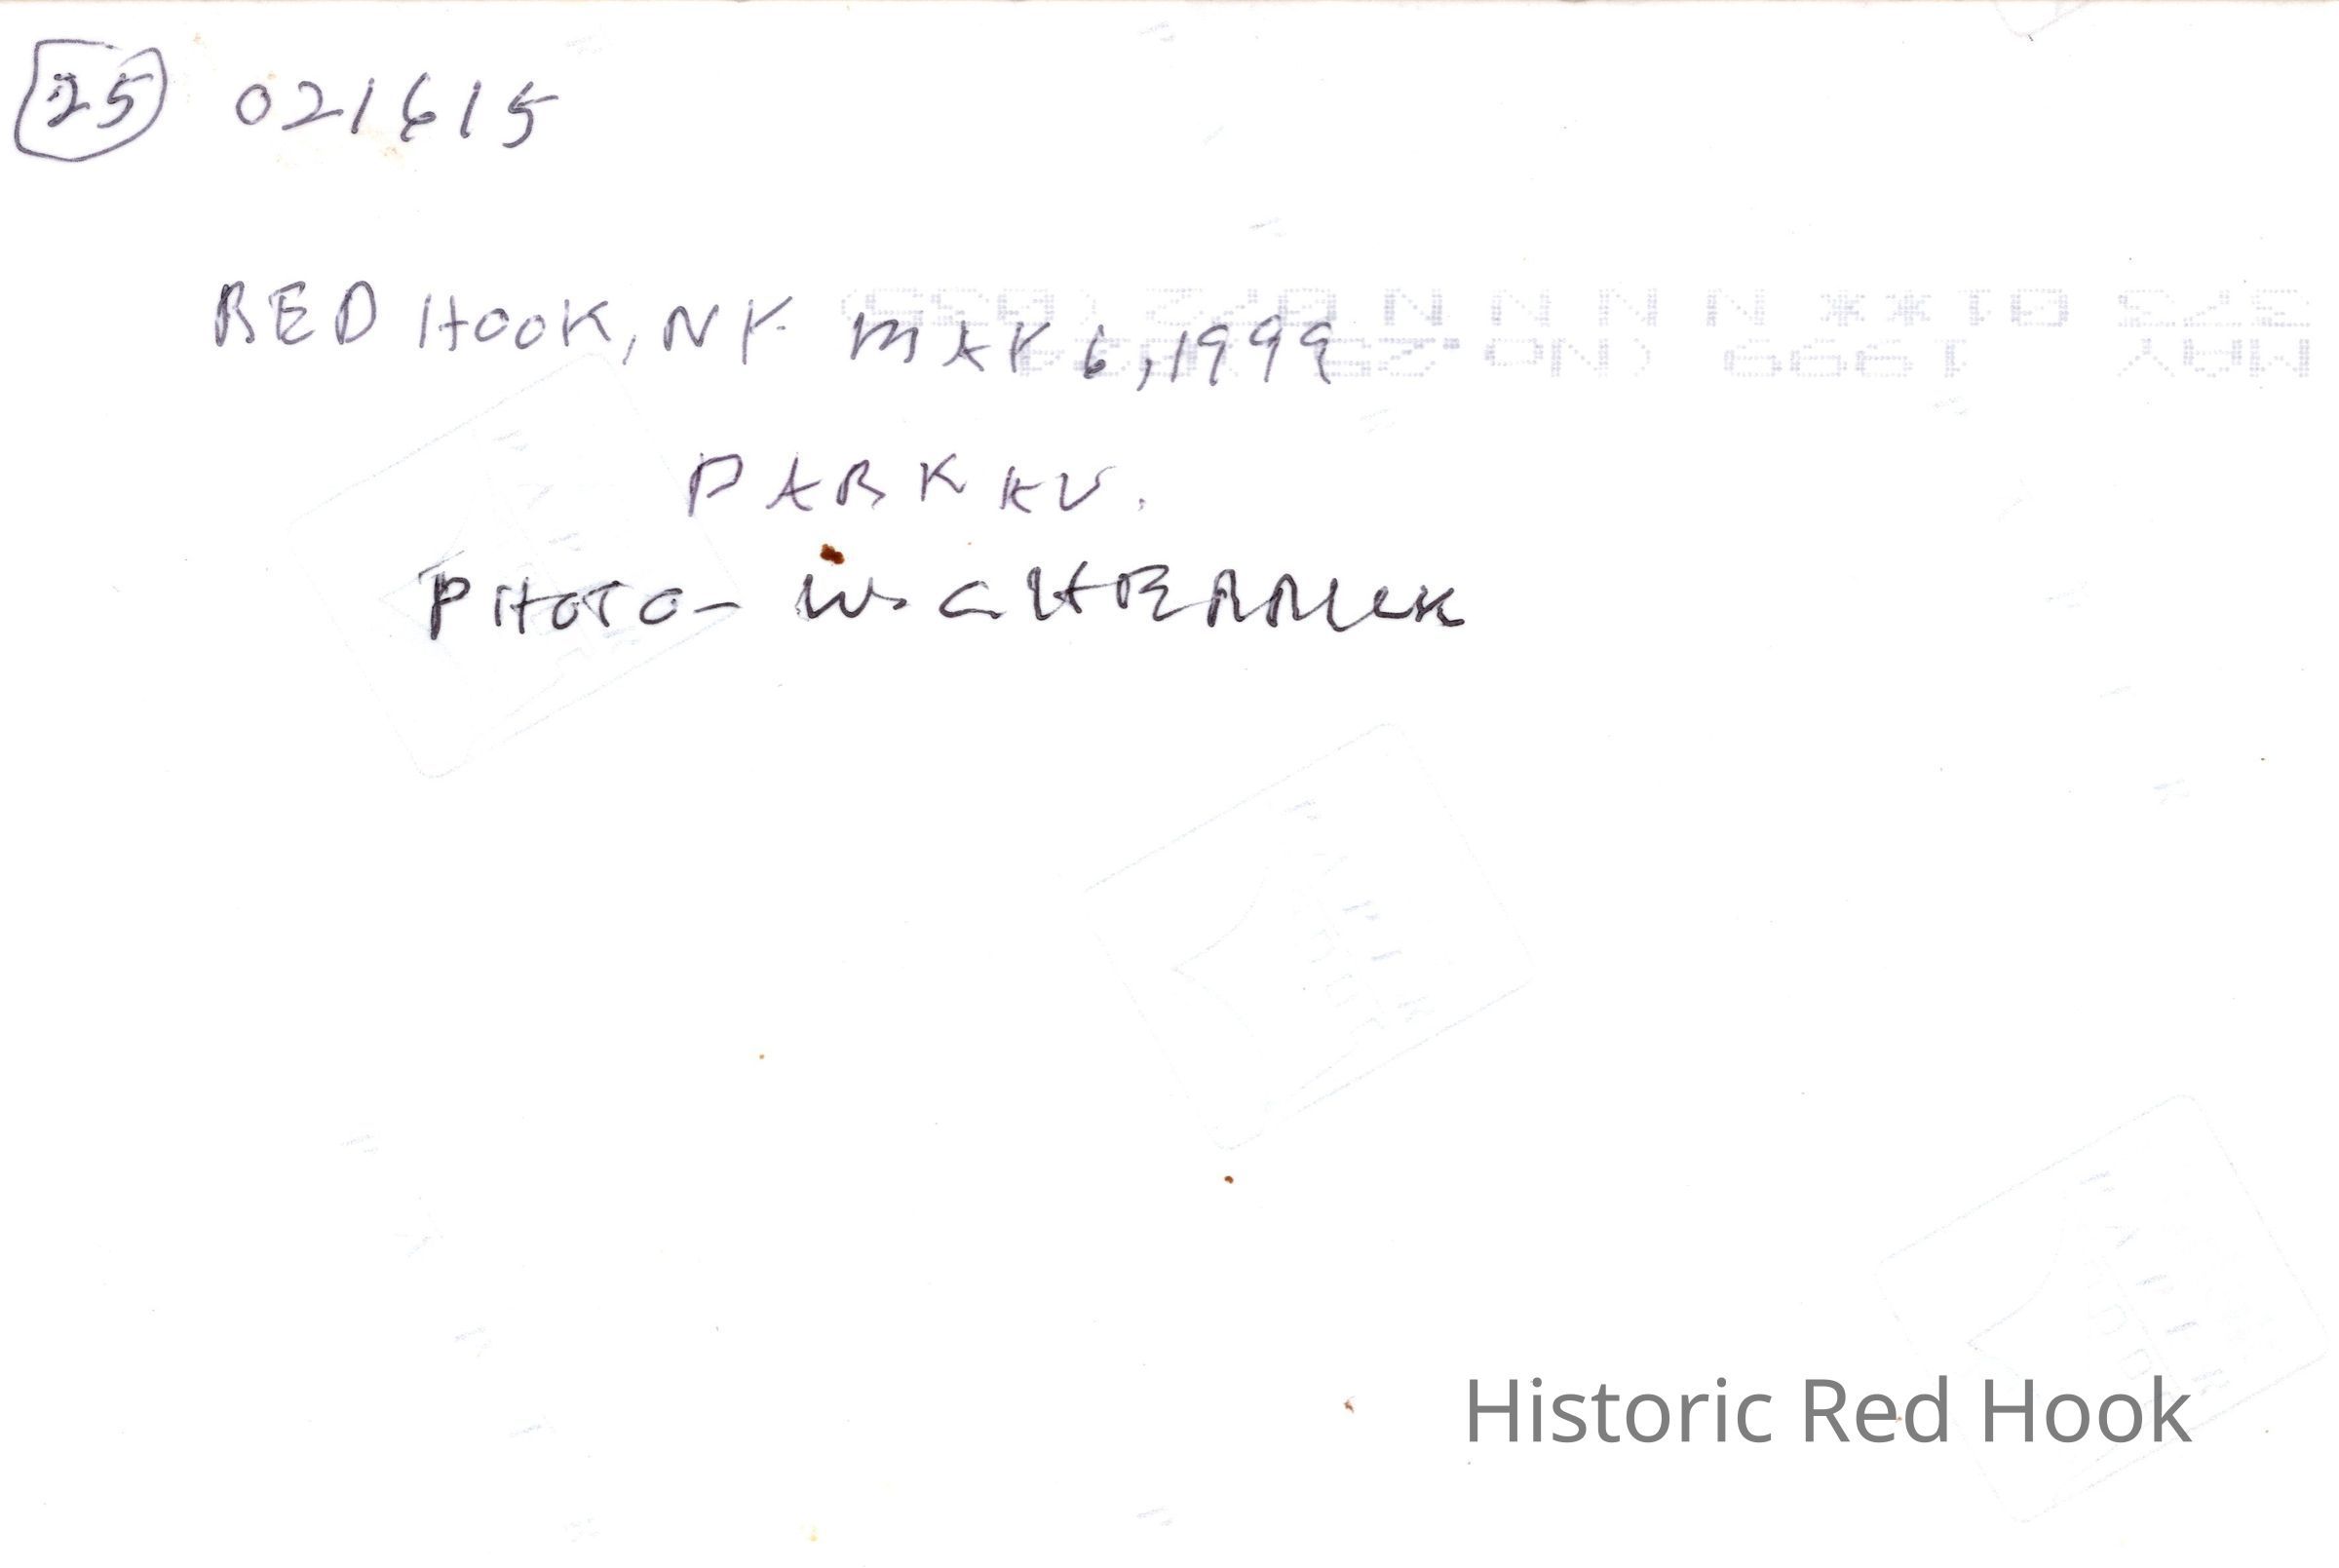 25 021615
RED HOOK, NY MAY 6, 1999
PARK AV.
PHOTO - W.
Historic Red Hook